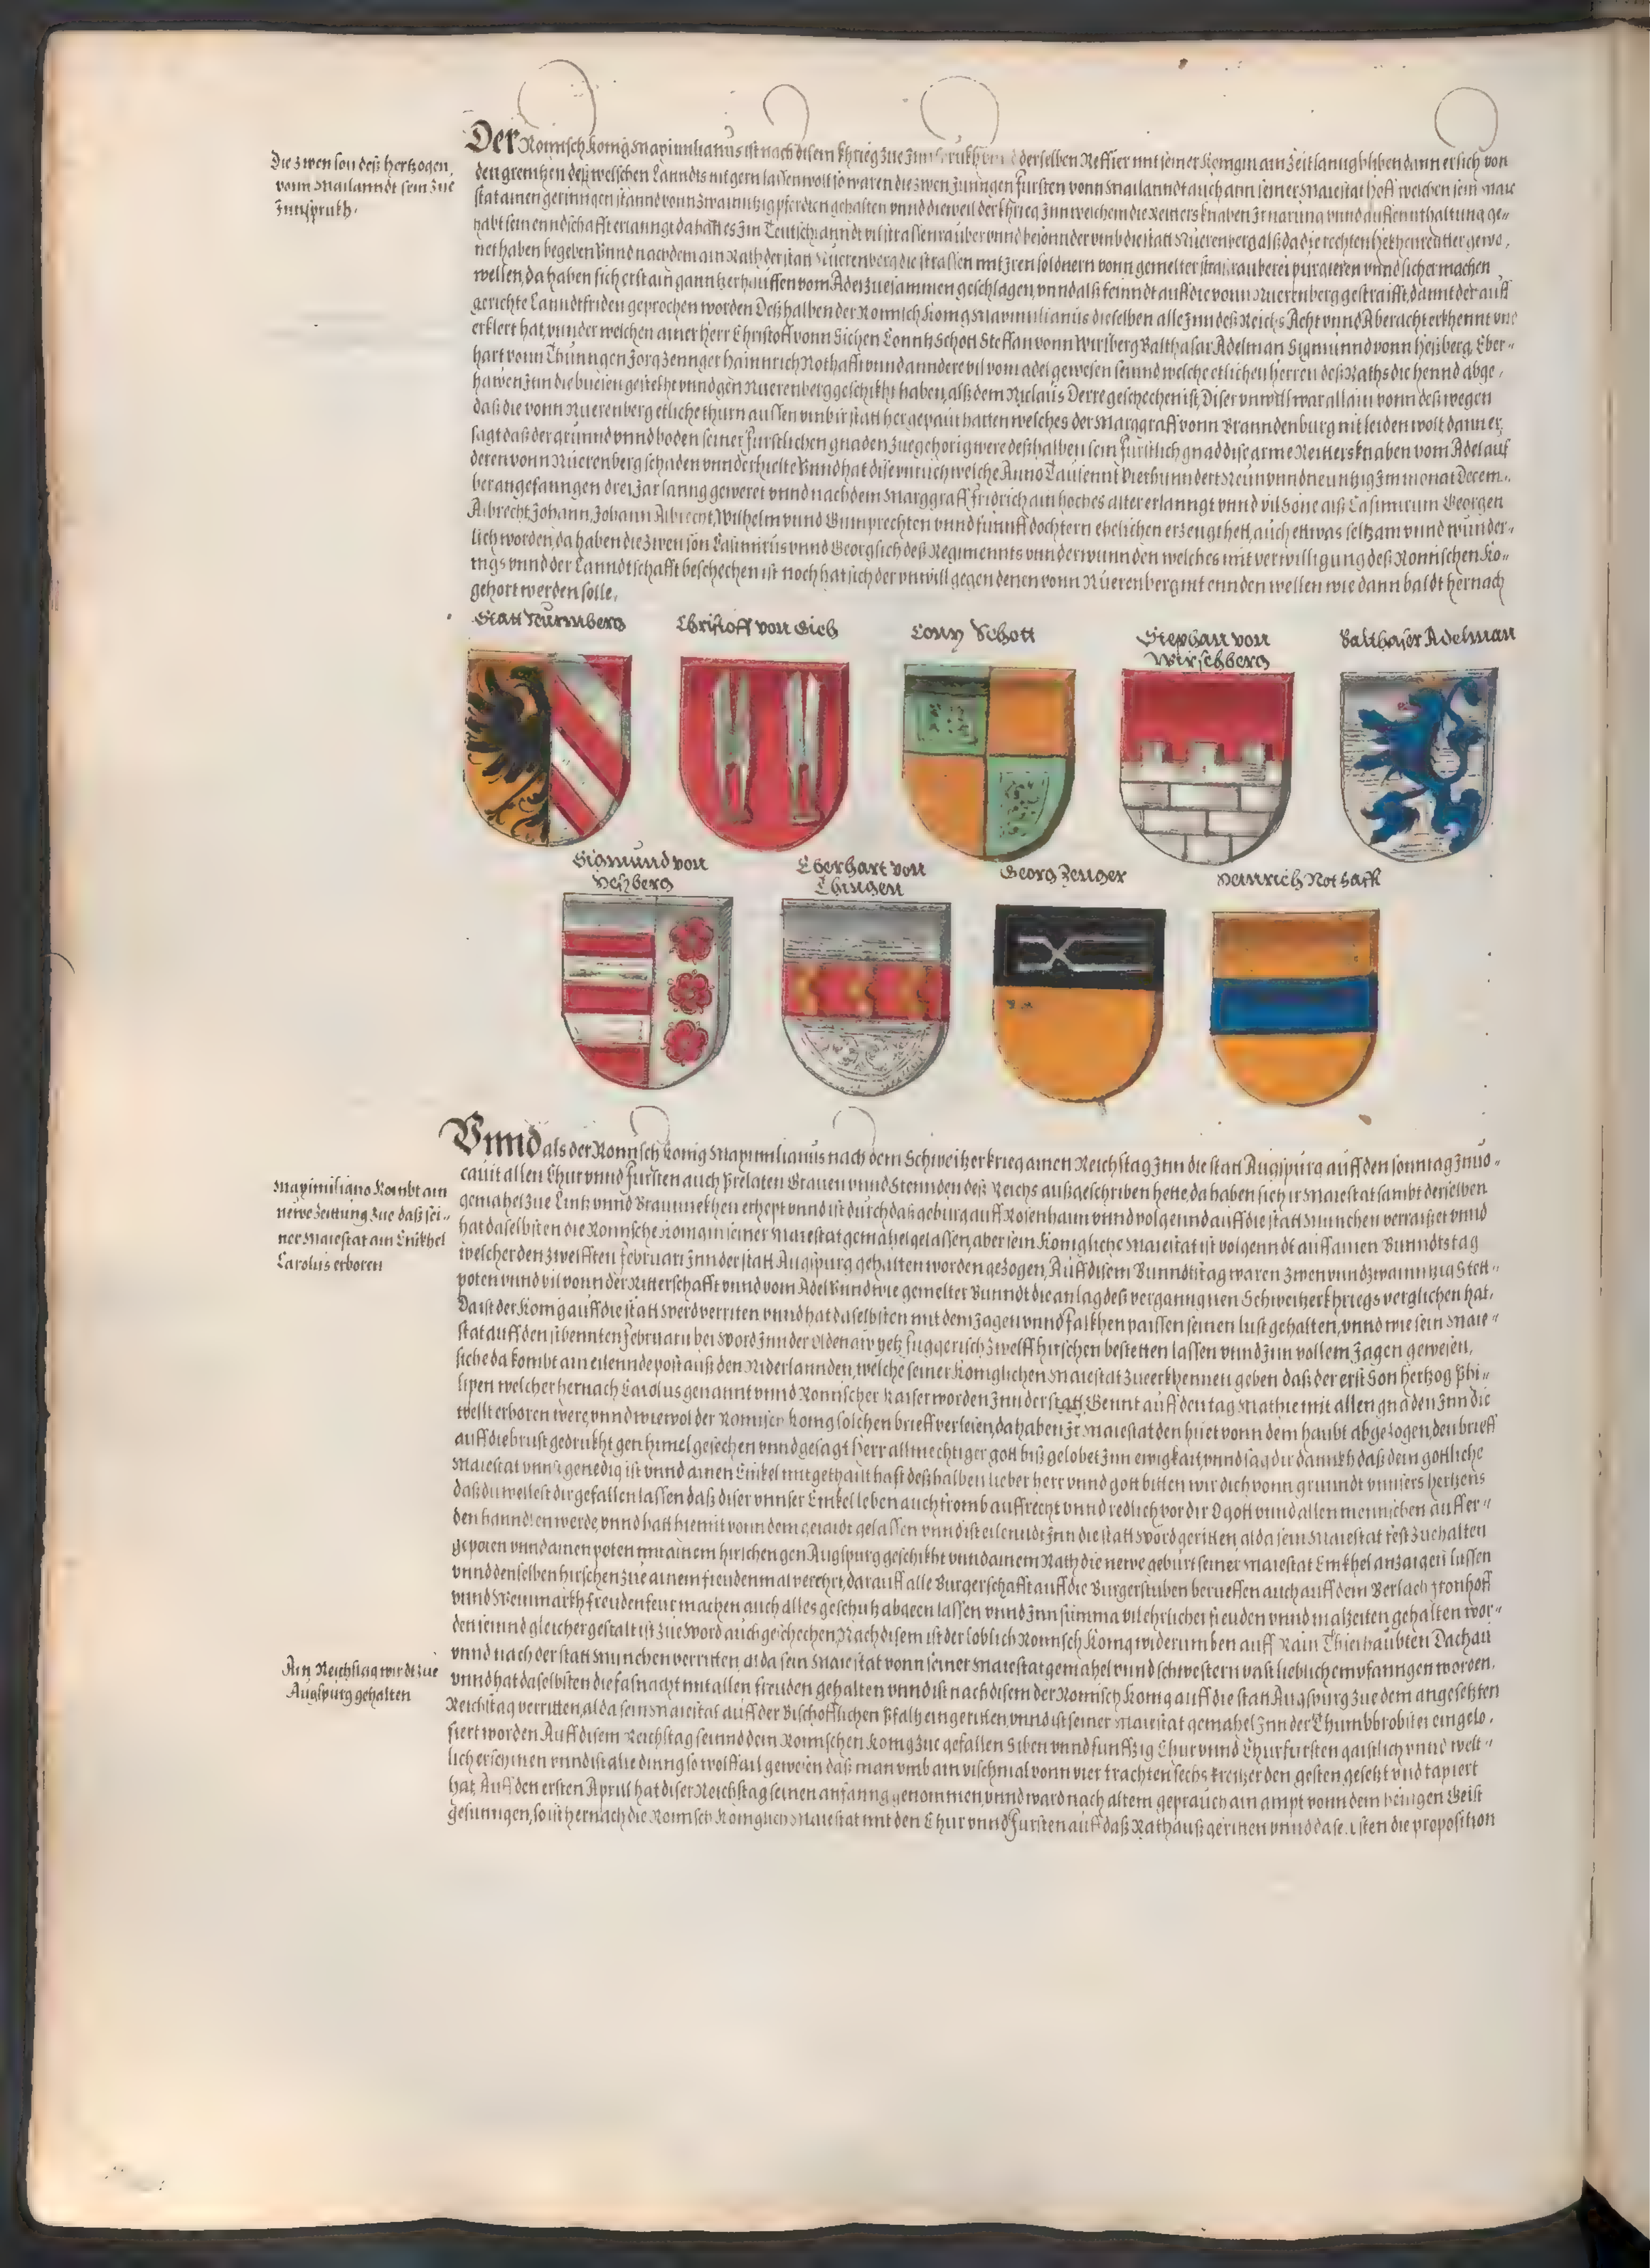 Die zwen son deß hertzogen
vonn Mailanndt sein zue
Jnnspruckh.
Der Romisch konig Maximilianus ist nach disem khrieg zue derselben Reffier mit seiner Konigin ain zeit lanng bliben dann er sich von
den grentzen deß welschen Lanndts nit gern lassen wolt so waren die zwen junngen fursten vonn Mailanndt auch ann seiner Maiestat hoff welchen sein Maie
stat ainen geringen stannd vonn zwainntzig pferden gehalten vnnd dieweil der khrieg Jnn welchem die Reitters knaben Jr narung vnnd auffennthaltung ge-
habt sein enndschafft erlanngt da hatt es Jm Teutschlanndt vil strassenrauber vnnd besonnder vmb die statt Nuerenberg alß da die rechten heckhenreitter gewo,
net haben begeben Vnnd nachdem ain Rath der statt Nuerenberg die strassen mit Jren soldnern vonn gemelter strassrauberei purgieren vnnd sicher machen
wellen, da haben sich erst ain ganntzer hauffen vom Adel zuesammen geschlagen, vnnd alß feinndt auff die vonn Nuerenberg gestraifft, dannt der auff
gerichte Lanndtfriden geprochen worden Deßhalben der Romisch Konig Maximilianus dieselben alle Jnn deß Reichs Acht vnnd Aberacht erkhennt vnd
erklert hat, vnnder welchen ainer herr Christoff vonn Gichen Conntz Schott Steffan vonn Wirsberg Balthasar Adelman Sigmunnd vonn Heßberg, Eber-
hart vonn Thunngen Jorg Zennger hainnrich Nothafft vnnd anndere vil vom adel gewesen seinnd, welche etlichen herren deß Raths die hennd abge,
hawen Jnn die buesen gesteckht vnnd gen Nuerenberg geschickht haben, alß dem Niclaus Derre geschechen ist, Diser vnwill war allain vonn deßwegen
daß die vonn Nuerenberg etliche thurn aussen vmb ir statt her gepaut hatten welches der Marggraff vonn Branndenburg nit leiden wolt dann er
sagt daß der grunnd vnnd boden seiner furstlichen gnaden zuegehorig were deßhalben sein furstlich gnad dise arme Reitters knaben vom Adel auf
deren vonn Nuerenberg schaden vnnderhielte Vnnd hat dise vnruch welche Anno Tausennt Vierhunndert Neun vnnd neuntzig Jm monat Decem-
ber angefanngen drei Jar lanng geweret vnnd nachdem Marggraff fridrich ain hoches alter erlanngt vnnd vil Sone alß Casimirum Georgen
Albrecht Johann, Johann Albrecht, Wilhelm vnnd Gumprechten vnnd funnff dochtern ehelichen erzeugt hett, auch ettwas seltzam vnnd wunder-
lich worden, da haben die zwen son Casimirus vnnd Georg sich deß Regiments vnnderwunnden welches mit verwilligung deß Romischen Ko-
nigs vnnd der Lanndtschafft beschechen ist noch hat sich der vnwill gegen denen vonn Nuerenberg nit ennden wellen wie dann baldt hernach
gehort werden solle.
Statt Nurmberg
Christoff von Gich
Conz Schott
Stephan von
Wirschberg
Balthaser Adelman
Sigmund von
Heßberg
Eberhart von
Thingen
Georg Zenger
Heinrich Nothafft
Vnnd als der Romisch konig Maximilianus nach dem Schweitzerkrieg ainen Reichstag Jnn die statt Augspurg auff den sonntag Jnuo-
cauit allen Chur vnnd Fursten auch Prelaten Grauen vnnd Stennden deß Reichs außgeschriben hette, da haben sich ir Maiestat sambt derselben
Maximiliano kombt ain
newe zeittung zue daß sei-
ner Maiestat ain Enickhel
Carolus erboren
gemahel zue Lintz vnnd Braunnekhen erhept vnnd ist durch daß geburg auff Rosenhaim vnnd volgennd auff die statt Munchen verraiset vnnd
hat daselbsten die Romische Konigin seiner Maiestat gemahel gelassen, aber sein Konigliche Maiestat ist volgenndt auff ainen Bunndtstag
welcher den zwelfften Februari Jnn der statt Augspurg gehalten worden gezogen, Auff disem Bunndtstag waren zwen vnnd zwainntzig Stett-
poten vnnd vil vonn der Ritterschafft vnnd vom Adel Vnnd wie gemelter Bunndt die anlag deß verganngnen Schweitzerkhriegs verglichen hat,
Da ist der Konig auff die statt Werd verritten vnnd hat daselbsten mit dem Jagen vnnd falckhen paissen seinen lust gehalten, vnnd wie sein Maie-
stat auff den sibennten Februarii bei Word Jnn der Oldenaw yetz fuggerisch zwelff hirschen bestetten lassen vnnd Jnn vollem Jagen gewesen,
siehe da kombt ain eilennde post auß den Niderlannden, welche seiner Koniglichen Maiestat zue erkhennen geben daß der erst Son hertzog Phi-
lipen welcher hernach Carolus genannt vnnd Romischer Kaiser worden Jnn der statt Gennt auff den tag Mathie mit allen gnaden Jnn die
wellt erboren were, vnnd wiewol der Romisch Konig solchen brieff verlesen, da haben Jr Maiestat den huet vonn dem haubt abgezogen, den brieff
auff die brust gedruckht gen himel gesechen vnnd gesagt herr allmechtiger gott biß gelobet Jnn ewigkait, vnnd sag dir dannckh daß dein gottliche
Maiestat vnns genedig ist vnnd ainen Enikel mitgethailt hast deßhalben lieber herr vnnd gott bitten wir dich vonn grunndt vnnsers hertzens
daß du wellest dir gefallen lassen daß diser vnnser Enikel leben auch fromb auffrecht vnnd redlich vor dir O gott vnnd allen mennschen auff er-
den hanndlen werde, vnnd hatt hiemit vonn dem gejaidt gelassen vnnd ist eilenndt Jnn die statt Word geritten, alda sein Maiestat fest zuehalten
gepoten vnnd ainen poten mit ainem hirschen gen Augspurg geschickht vnnd ainem Rath die newe geburt seiner Maiestat Enickhel anzaigen lassen
vnnd denselben hirschen zue ainem freudenmal verehrt, darauff alle Burgerschafft auff die Burgerstuben berueffen auch auff dem Perlach fronhoff
vnnd Weinmarckh freudenfeur machen auch alles geschutz abgeen lassen vnnd Jnn summa vil ehrlicher freuden vnnd malzeiten gehalten wor-
den seinnd gleicher gestalt ist zue Word auch geschechen, Nach disem ist der loblich Romisch Konig widerumben auff Rain Thierhaubten Dachau
vnnd nach der statt Munchen verritten alda sein Maiestat vonn seiner Maiestat gemahel vnnd schwestern vast lieblich empfanngen worden,
Ain Reichstag wirdt zue
Augspurg gehalten
vnnd hat daselbsten die fasnacht mit allen freuden gehalten vnnd ist nach disem der Romisch Konig auff die statt Augspurg zue dem angesetzten
Reichstag verritten, alda sein Maiestat auff der Bischofflichen Pfaltz eingeritten, vnnd ist seiner Maiestat gemahel Jnn der Thumbbrobstei eingelo,
siert worden. Auff disem Reichstag seinnd dem Romischen Konig zue gefallen Siben vnnd funffzig Chur vnnd Churfursten gaistlich vnnd welt-
lich erschinen vnnd ist alle dinng so wolffail gewesen daß man vmb ain vischmal vonn vier trachten sechs kreitzer den gesten, gesetzt vnd tapiert
hat, Auff den ersten Aprill hat diser Reichstag seinen anfanng genommen, vnnd ward nach altem geprauch ain ampt vonn dem heiligen Geist
gesunngen, so ist hernach die Romisch Koniglich Maiestat mit den Chur vnnd Fursten auff daß Rathauß geritten vnnd daselbsten die proposition